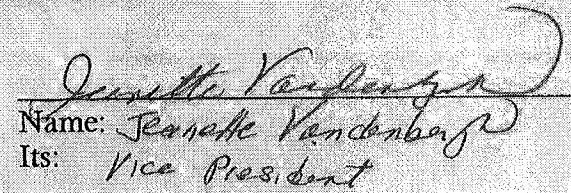 Jeanette Vandenbergh
Name: Jeanette Vandenbergh
Its: Vice President